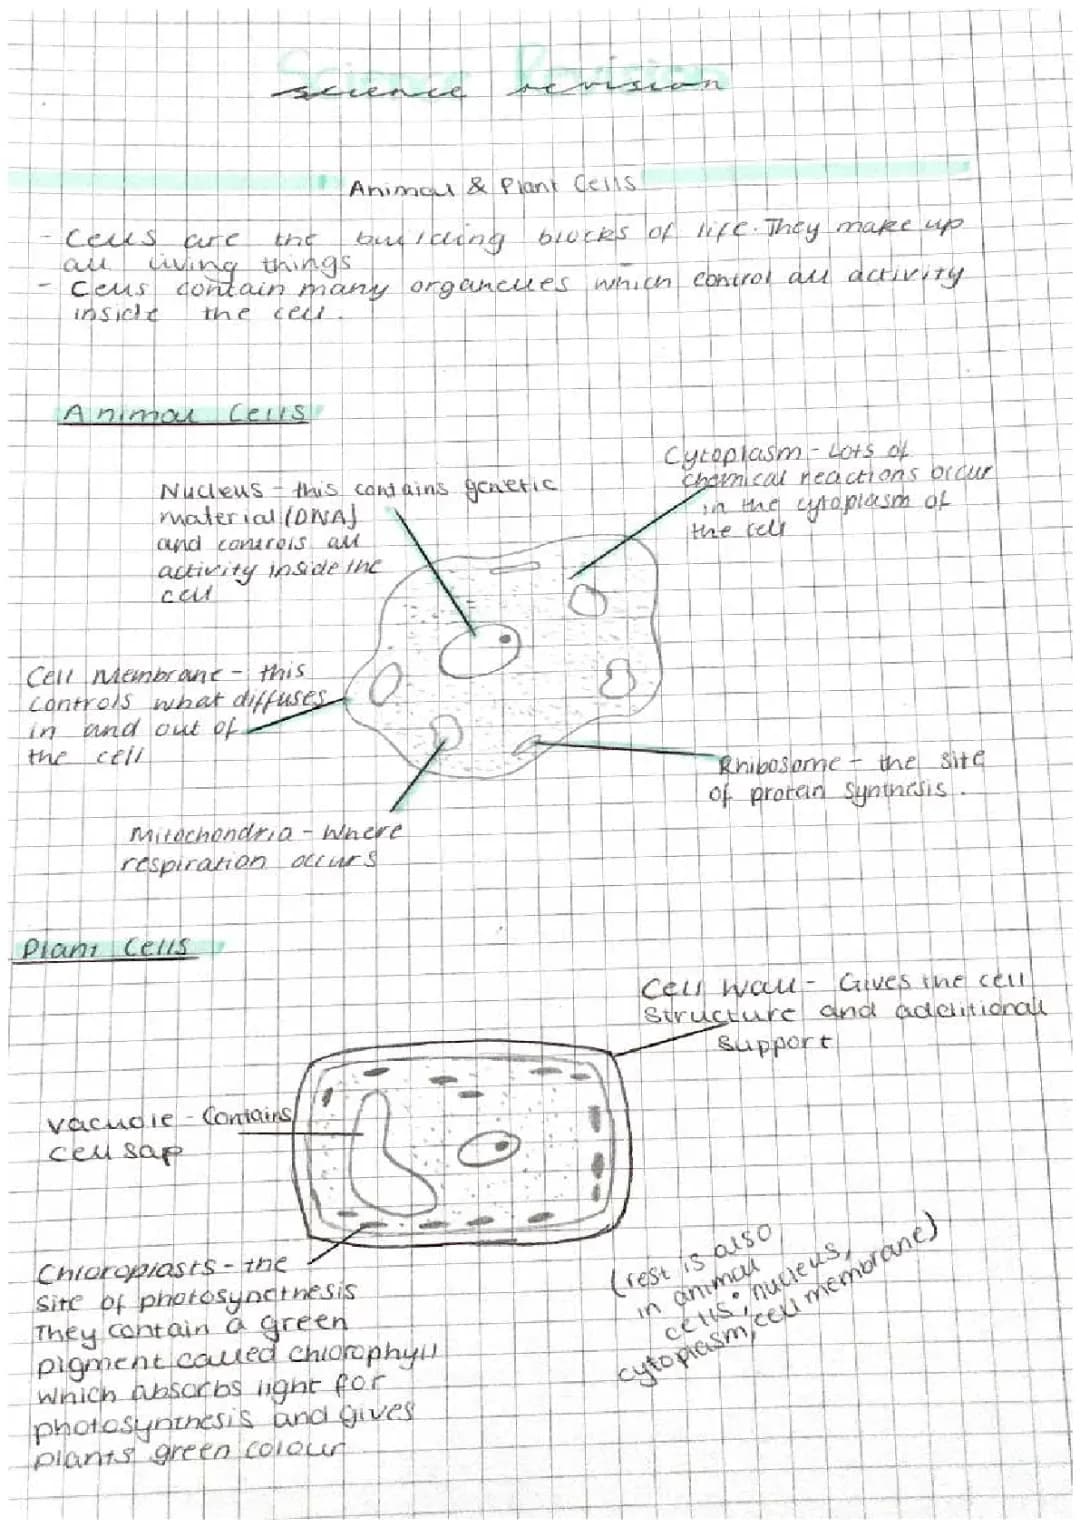 Science Revision
Animal & Plant Cells
- Cells are the building blocks of life. They make up
all living things
- Cells contain many organelles which control all activity
inside the cell.
Animal Cells
Nucleus - this contains genetic
material (DNA)
and controls all
activity inside the
cell
Cytoplasm - Lots of
chemical reactions occur
in the cytoplasm of
the cell
Cell Membrane - this
controls what diffuses
in and out of
the cell
Rhibosome - the site
of protein synthesis.
Mitochondria - Where
respiration occurs
Plant Cells
Cell wall - Gives the cell
structure and additional
support
vacuole - Contains
cell sap
Chloroplasts - the
site of photosyncthesis
They contain a green
pigment called chlorophyll
which absorbs light for
photosynthesis and gives
plants green colour
(rest is also
in animal
cells: nucleus,
cytoplasm, cell membrane)